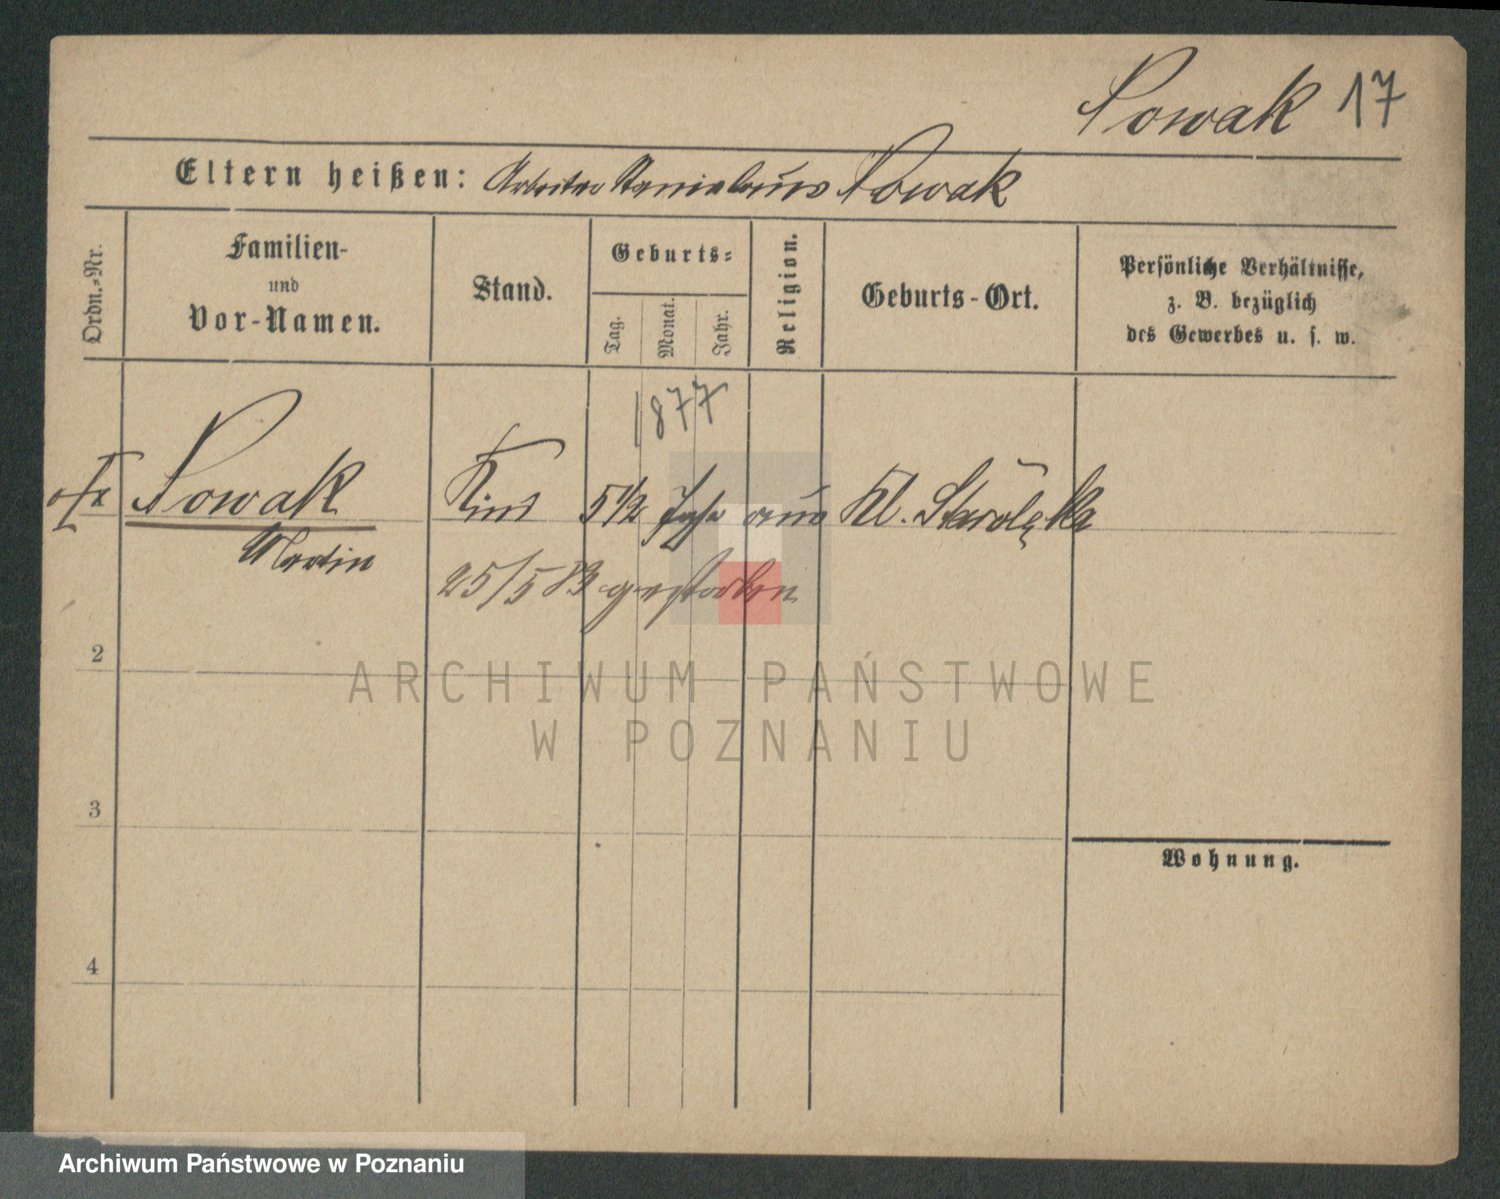 Nowak 17
Eltern heißen: Arbeiter Stanislaus Nowak
Ordn.-Nr.
Familien-
und
Vor-Namen.
Stand.
Geburts-
Tag.
Monat.
Jahr.
Religion.
Geburts-Ort.
Persönliche Verhältnisse,
z. B. bezüglich
des Gewerbes u. s. w.
1877
Nowak Kind 5 1/2 Jahr aus Kl. Starolęka
Martin
25/5 83 gestorben
2
3
4
Wohnung.
ARCHIWUM PAŃSTWOWE
W POZNANIU
Archiwum Państwowe w Poznaniu